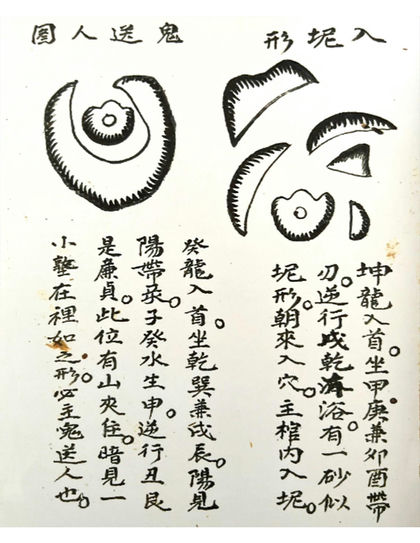 入坭形
坤龍入首。坐甲庚兼卯酉帶
刃。逆行戌乾沐浴。有一砂似
坭形。朝來入穴。主棺内入坭。
鬼送人圖
癸龍入首。坐乾巽兼戌辰。陽見
陽帶子癸水生申。逆行丑艮
是廉貞。此位有山夾住。暗見一
小在裡如之形。必主鬼送人也。